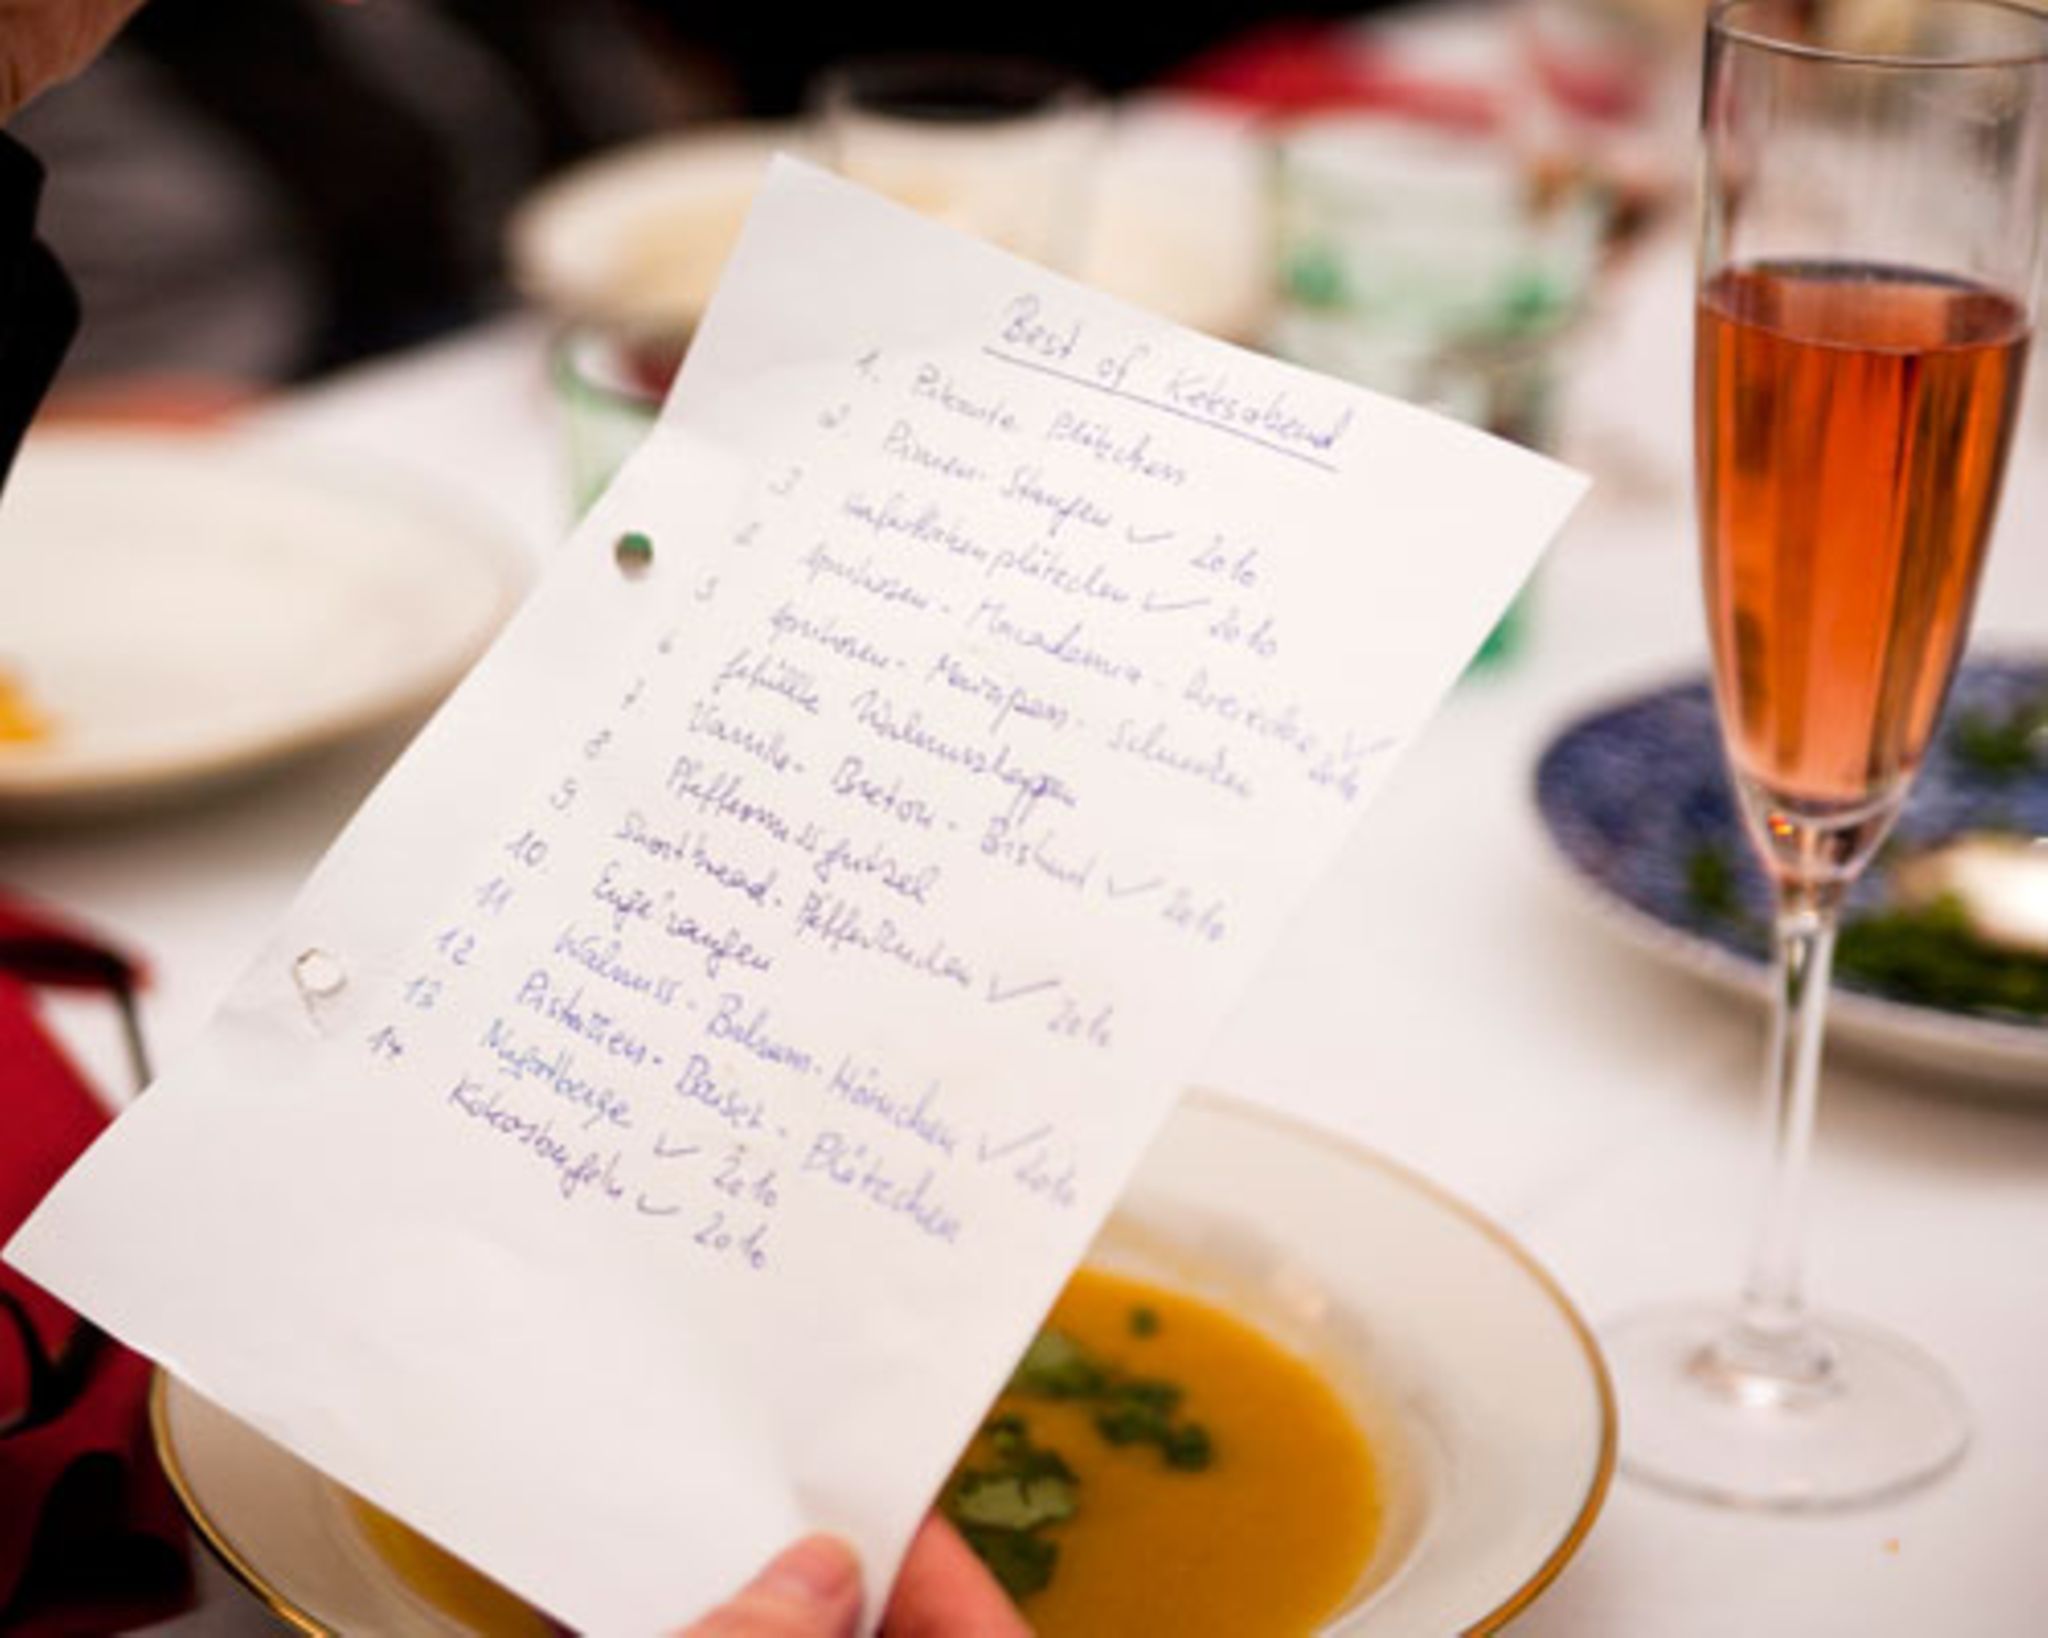 Best of Keksabend
1. Pikante Plätzchen
2. Stangen ✓ 2010
3 Haferflockenplätzchen ✓ 2010
4 Aprikosen - Macadamia - ✓ 2010
5 Aprikosen - Marzipan - Schnitten
6 gefüllte Walnusskappen
7 Vanille - Breton - Biskuit ✓ 2010
8 Pfeffernussfutzel
9. Shortbread - ✓ 2010
10.
11 Walnuss - Balsam - Hörnchen ✓ 2010
12 Pistazien - Baiser - Plätzchen
13 Nugatberge ✓ 2010
14 ✓ 2010